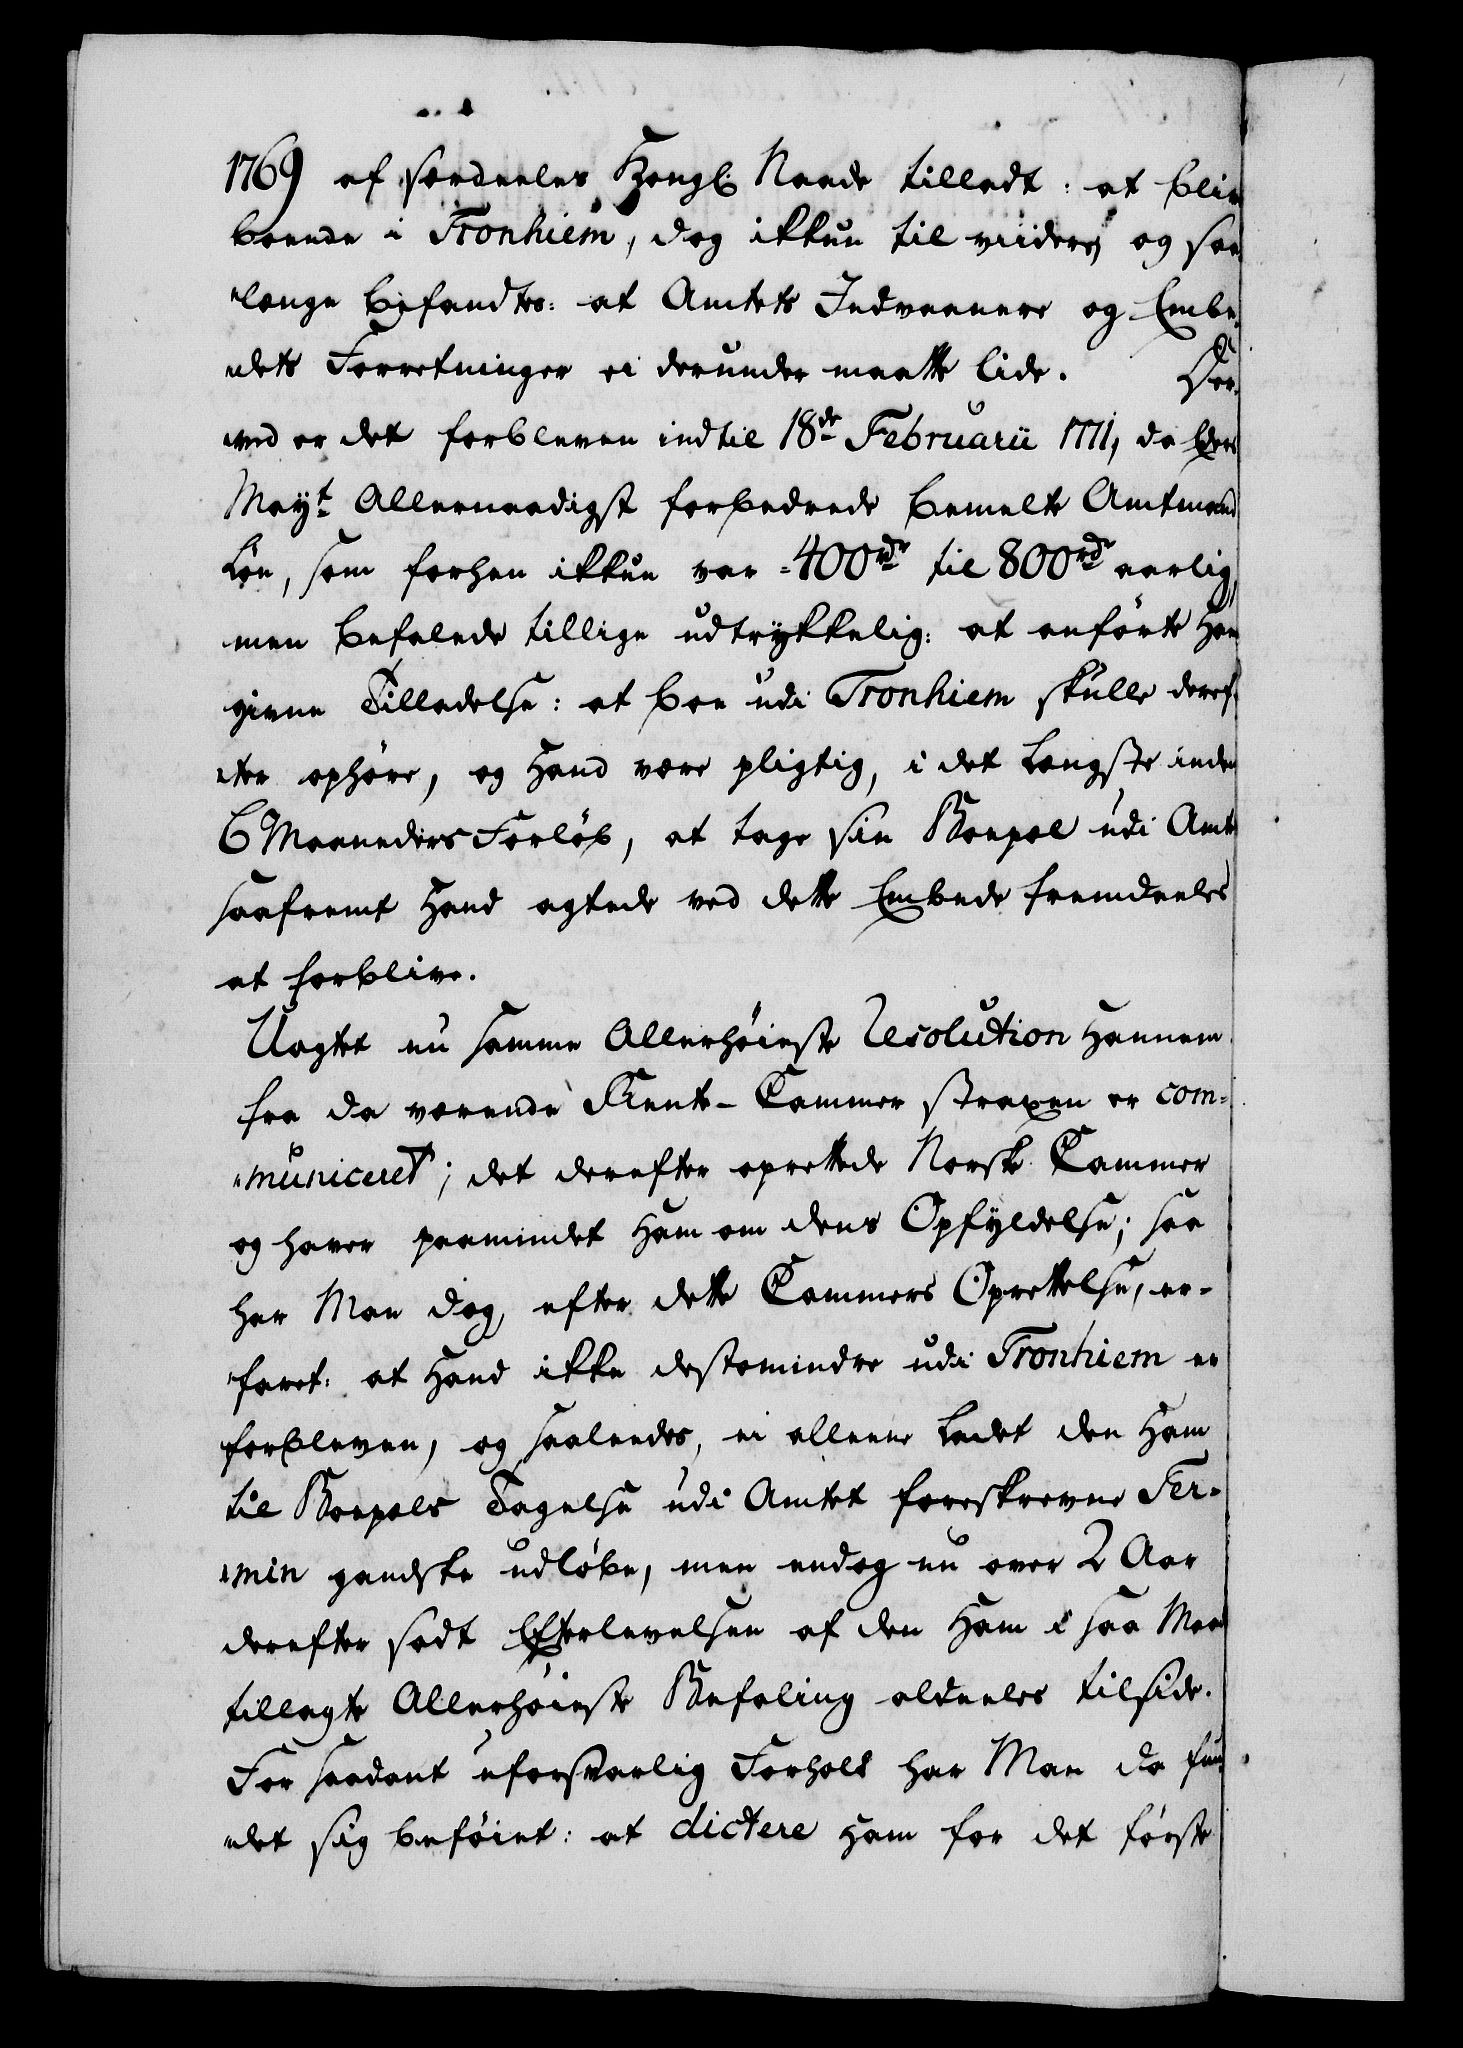 1769 af særdeeles Kongl: Naade tilladt: at bliv
boende i Tronhiem, dog ikkun til viidere, og saa
længe befandtes: at Amtets Indvaanere og Embe-
dets Forretninger ei derunder maatte lide. Der-
ved er det forbleven indtil 18de Februarii 1771, da Eders
Mayt Allernaadigst forbedrede bemelte Amtmand
Løn, som forhen ikkun var 400rdr til 800rdr aarlig,
men befalede tillige udtrykkelig: at anførte Ham
givne Tilladelse: at boe udi Tronhiem skulle deref-
ter ophøre, og Hand være pligtig, i det Længste inden
6 Maaneders Forløb, at tage sin Boepæl udi Amt
saafremt Hand agtede ved dette Embede fremdeeles
at forblive.
Uagtet nu samme Allerhøieste Resolution Hannem
fra da værende Rente-Cammer straxen er com-
municeret; det derefter oprettede Norske Cammer
og haver paamindet Ham om dens Opfyldelse; saa
har Man dog, efter dette Cammers Oprettelse, er-
faret: at Hand ikke destomindre udi Tronhiem er
forbleven, og saaleedes, ei alleene Ladet den Ham
til Boepæls Tagelse udi Amtet foreskrevne Ter-
min gandske udløbe, men endog nu over 2 Aar
derefter sadt Efterlevelsen af den Ham i saa Maade
tillagte Allerhøieste Befaling aldeeles tilside.
For saadant uforsvarlig Forhold har Man da fun-
det sig beføiet: at dictere Ham for det første